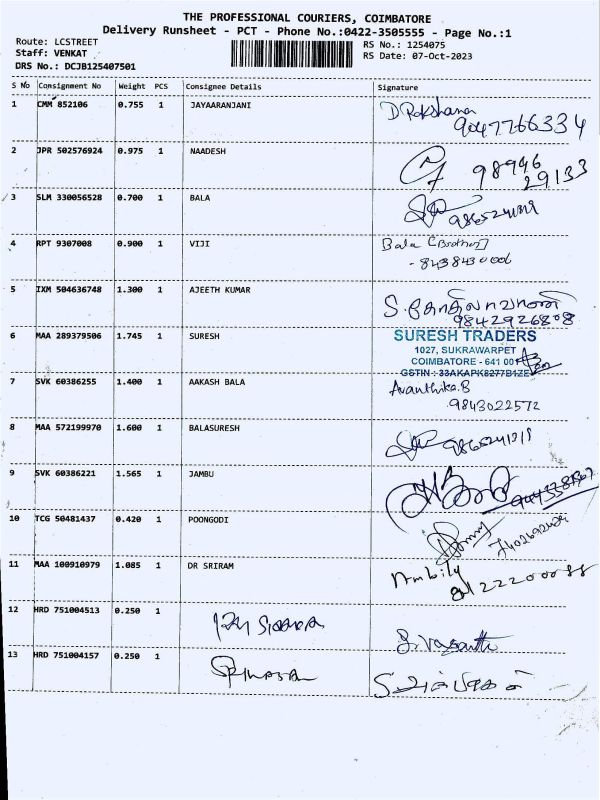 THE PROFESSIONAL COURIERS, COIMBATORE
Delivery Runsheet - PCT - Phone No.:0422-3505555 - Page No.:1
Route: LCSTREET
Staff: VENKAT
DRS No.: DCJB125407501
RS No.: 1254075
RS Date: 07-Oct-2023
S No Consignment No Weight PCS Consignee Details Signature
1 CMM 852106 0.755 1 JAYAARANJANI
9047766334
2 JPR 502576924 0.975 1 NAADESH
98946
29133
3 SLM 330056528 0.700 1 BALA
4 RPT 9307008 0.900 1 VIJI Bala (Brother)
- 8438430006
5 IXM 504636748 1.300 1 AJEETH KUMAR
9842926808
6 MAA 289379506 1.745 1 SURESH SURESH TRADERS
1027, SUKRAWARPET
COIMBATORE - 641 001
GSTIN : 33AKAPK8277B1ZE
7 SVK 60386255 1.400 1 AAKASH BALA Avanthika.B
9843022572
8 MAA 572199970 1.600 1 BALASURESH
9 SVK 60386221 1.565 1 JAMBU
10 TCG 50481437 0.420 1 POONGODI
11 MAA 100910979 1.085 1 DR SRIRAM
12 HRD 751004513 0.250 1 S. Vasanthi
13 HRD 751004157 0.250 1